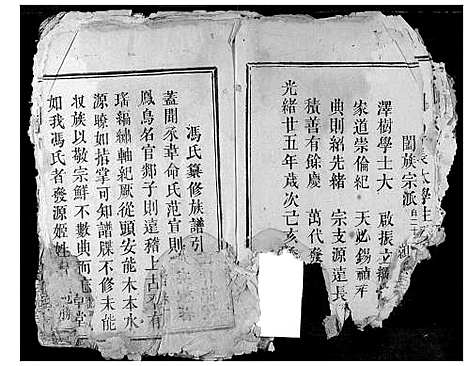 闔族宗派
澤樹學士大 啟振立
家道崇倫紀 天必錫禎
典則紹先緒 宗支源遠長
積善有餘慶 萬代
光緒廿五年歲次己亥
馮氏纂修族譜引
蓋聞豕韋命氏范官則
鳳鳥名官郯子則遠稽上古乃有
瑤編繡軸紀厥從頭安能木本水
源瞭如指掌可知譜牒不修未能
收族以敬宗鮮不數典而忘
如我馮氏者發源姬姓